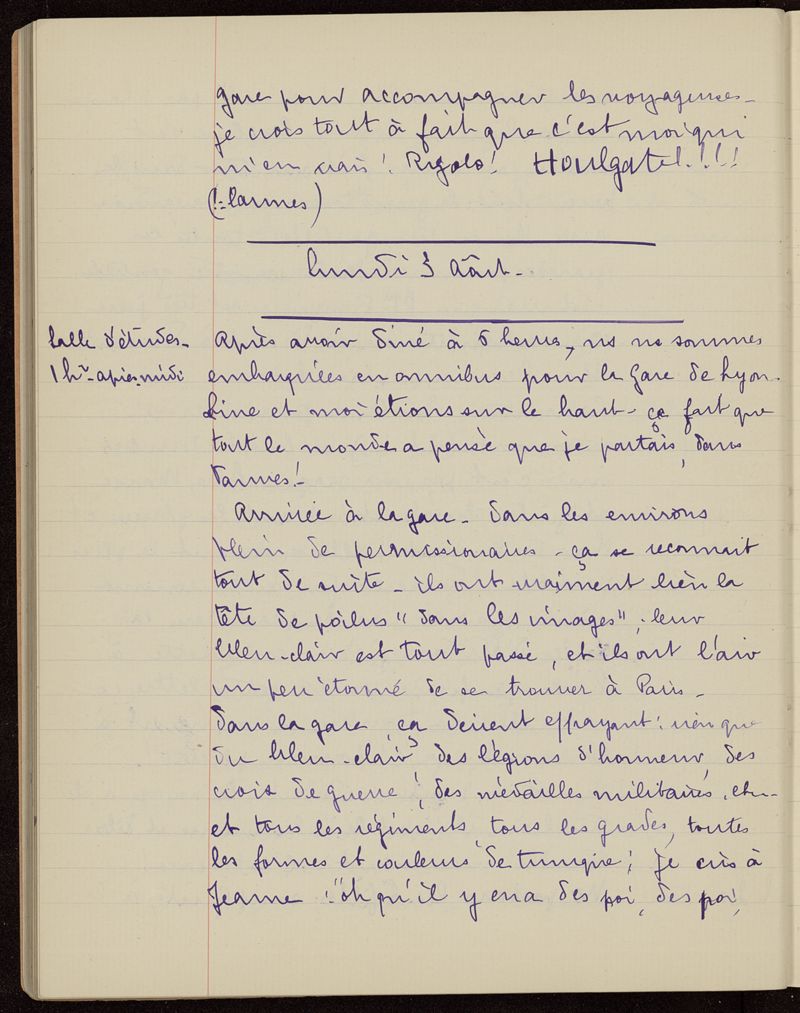 gare pour accompagner les voyageuses -
je crois tout à fait que c'est moi qui
m'en vais! Rigolo! Houlgate!.!!!
(!= larmes)
lundi 3 Août -
Salle d'études -
1 hr - après-midi
Après avoir dîné à 6 heures, ns ns sommes
embarquées en omnibus pour la gare de Lyon.
Line et moi étions sur le haut - ça fait que
tout le monde a pensé que je partais, dans
larmes! -
Arrivée à la gare - Dans les environs
plein de permissionaires - ça se reconnait
tout de suite - ils ont vraiment bien la
tête de poilus "dans les images", leur
bleu-clair est tout passé, et ils ont l'air
un peu étonné de se trouver à Paris -
Dans la gare, ça devient effrayant: rien que
du bleu-clair, des légions d'honneur, des
croix de guerre, des médailles militaires, etc -
et tous les régiments, tous les grades, toutes
les formes et couleurs de tunique; Je crie à
Jeanne: "oh qu'il y en a des poi, des poi,